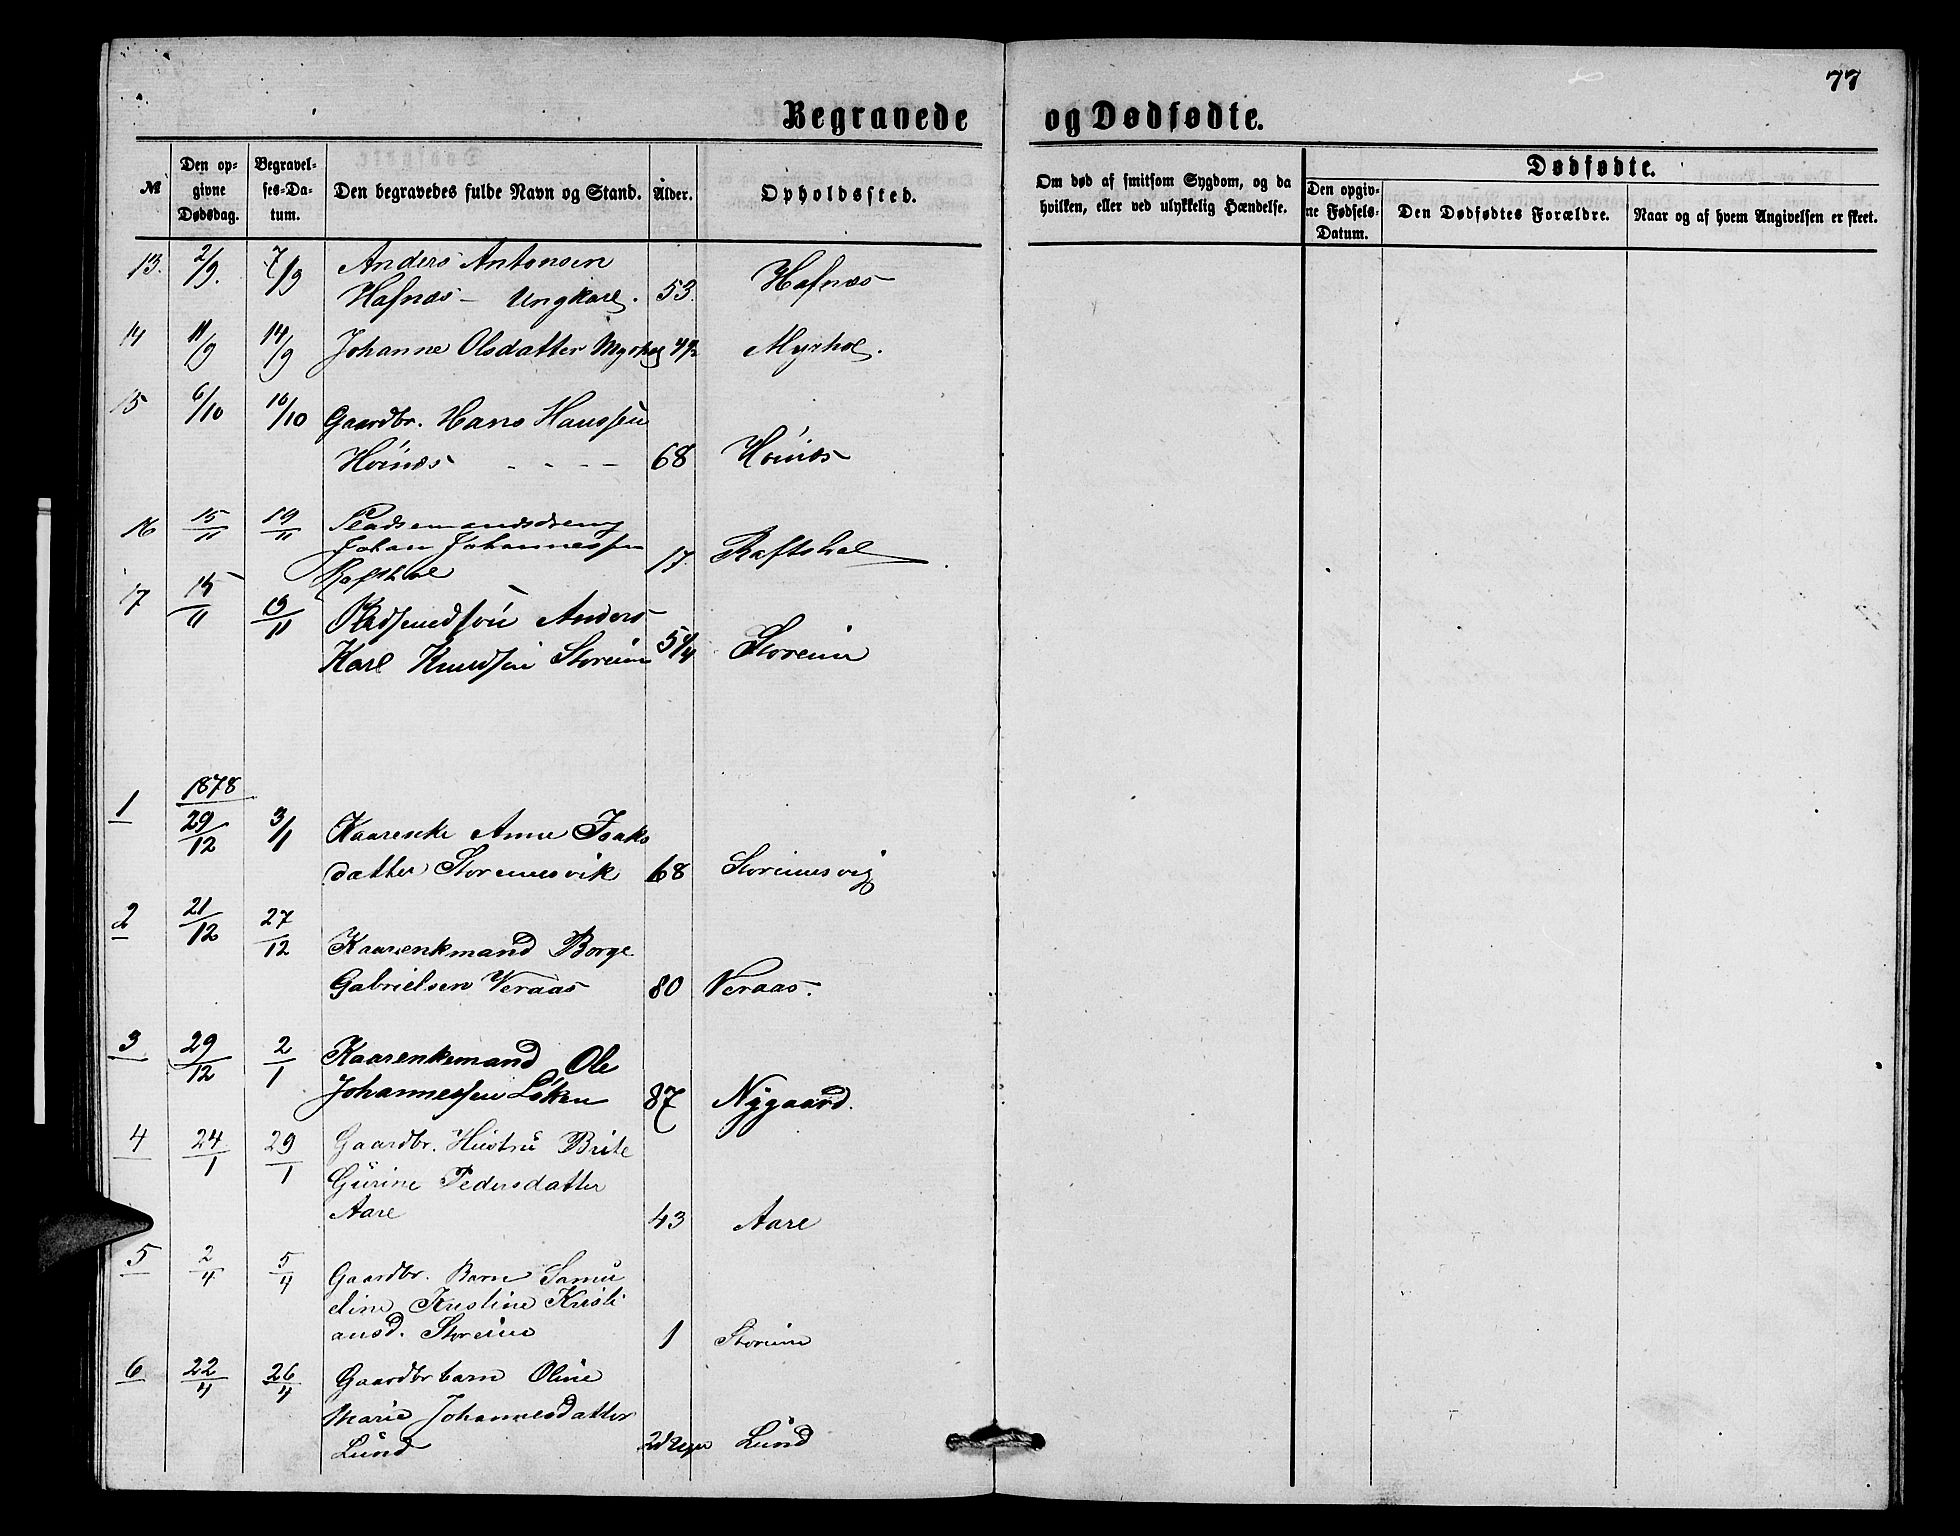 77
Begravede og Dødfødte.
№ Den opgivne Dødsdag. Begravelses-Datum. Den begravedes fulde Navn og Stand. Alder. Opholdssted. Om død af smitsom Sygdom, og da hvilken, eller ved ulykkelig Hændelse. Dødfødte. Den opgivne Fødsels-Datum. Den Dødfødtes Forældre. Naar og af hvem Angivelsen er skeet.
13. 2/9. 7/9 Anders Antonsen
Hafnæs – Ungkarl. 53. Hafnæs
14 11/9 14/9 Johanne Olsdatter Myrhol Myrhol.
15 6/10 10/10 Gaardbr. Hans Hanssen
Høinæs - - - - 68 Høinæs
16 15/11 19/11 Pladsemandsdreng
Johan Johannessen 17. Raftshol
Raftshol
17 15/11 19/11 Anders
Karl Knudsen Storeim 5 1/4 Storeim
1878
1 29/12 3/1 Kaarenke Anne Isaks
datter Storeimsvik 68 Storeimsvig
2 21/12 27/12 Kaarenkmand Borge
Gabrielsen Veraas 80 Veraas.
3 29/12 2/1 Kaarenkemand Ole
Johannessen Løken 87 Nygaard.
4 24/1 29/1 Gaardbr. Hustru Brite
Gurine Pedersdatter
Aare 43 Aare
5 2/4 5/4 Gaardbr. Barn Samu
eline Kristine Kristi
ansd. Storeim 1 Storeim
6 22/4 26/4 Gaardbr barn Oline
Marie Johannesdatter
Lund Lund